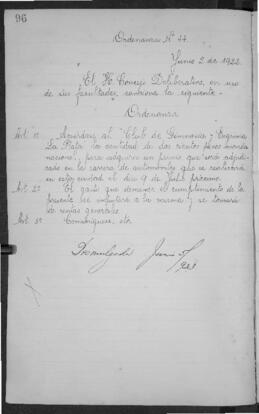 96
Ordenanza Nº 44
Junio 2 de 1922.
El H. Concejo Deliberativo, en uso
de sus facultades, sanciona la siguiente
Ordenanza
Art. 1º Acuérdase al Club de Gimnasia y Esgrima
La Plata la cantidad de dos cientos pesos moneda
nacional, para adquirir un premio que será adjudi-
cado en la carrera de automóviles que se realizará
en esta ciudad el dia 9 de Julio próximo.
Art. 2º El gasto que demande el cumplimiento de la
presente se imputará a la misma y se tomará
de rentas generales.
Art. 3º Comuníquese, etc.
Promulgada Junio